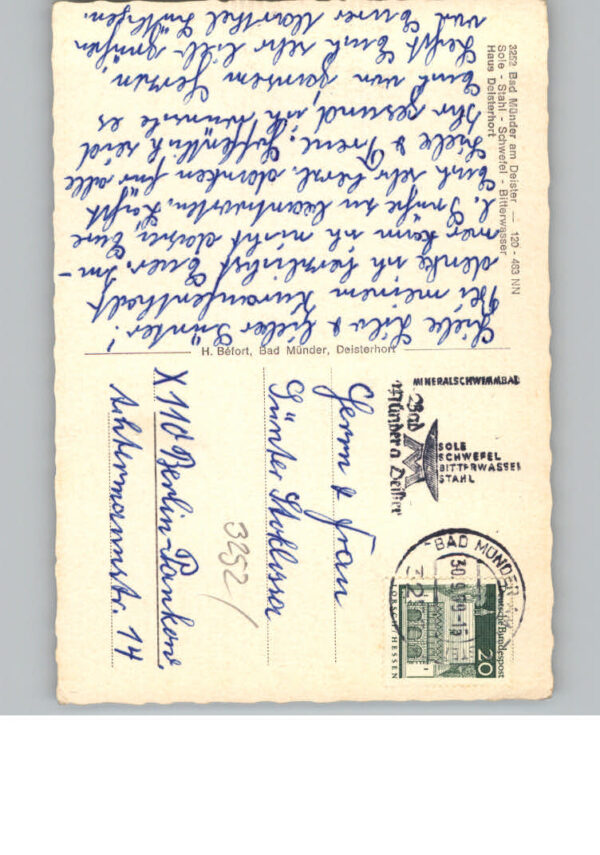 3252 Bad Münder am Deister — 120 - 483 NN
Sole - Stahl - Schwefel - Bitterwasser
Haus Deisterhort
Liebe Lilo & lieber Günter!
Bei meinem Kuraufenthalt
denke ich herzlichst Euer. Im-
mer kann ich nicht dazu Eure
l. Grüße zu beantworten.
Euch sehr herzl. danken für alle
Liebe & Treue. Hoffentlich seid
Ihr gesund, ich wünsche es
Euch von ganzem Herzen.
Laßt Euch sehr lieb grüßen
von Eurer
H. Béfort, Bad Münder, Deisterhort
MINERALSCHWIMMBAD
Bad
Münder a Deister
SOLE
SCHWEFEL
BITTERWASSER
STAHL
BAD MÜNDER
30.9.69-13
Deutsche Bundespost
20
LORSCH·HESSEN
Herrn & Frau
Günter Stoklossa
3252/
X 110 Berlin-Pankow
Achtermannstr. 14